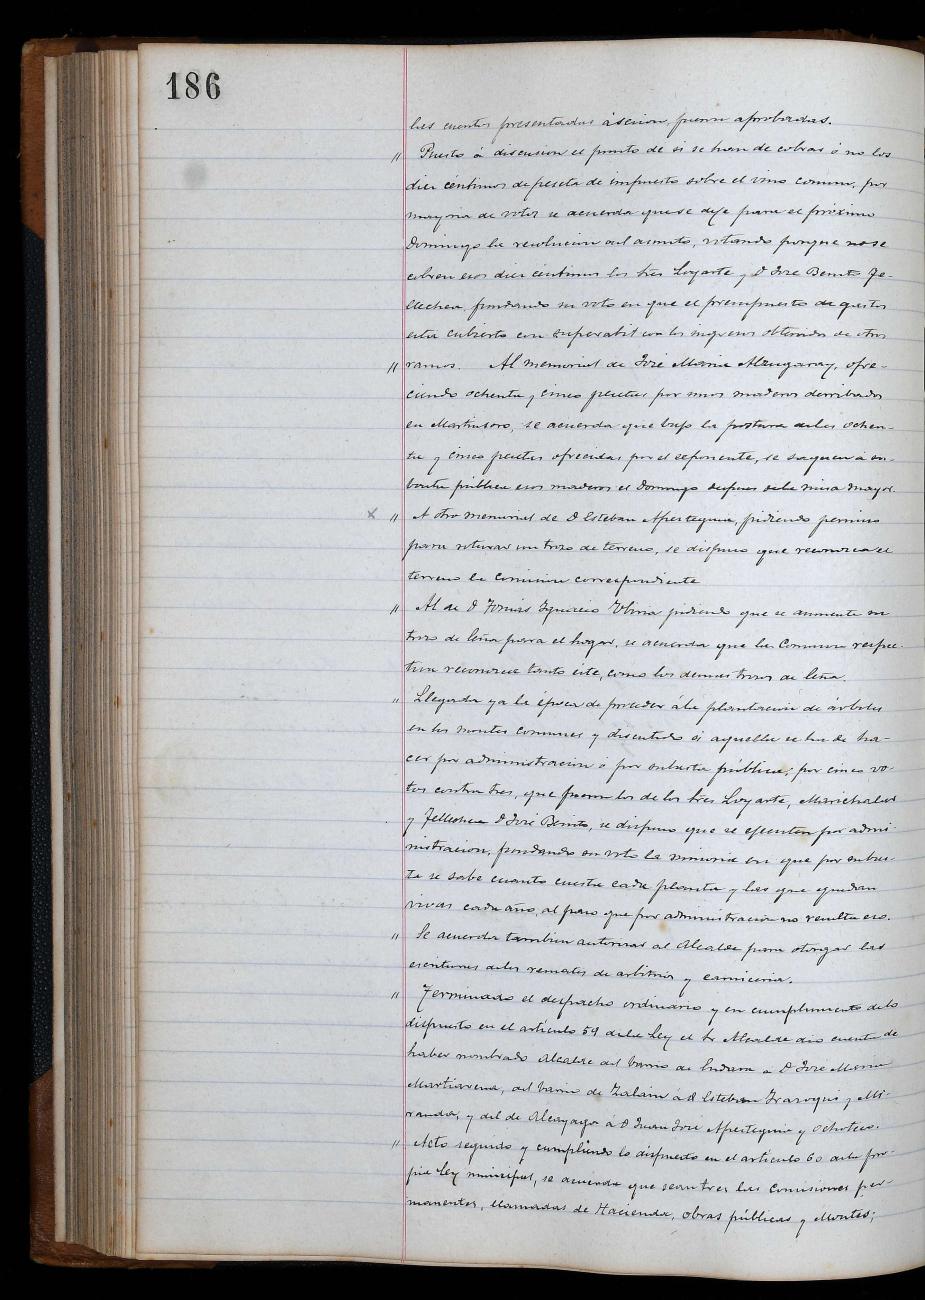 186
las cuentas presentadas á sesion, fueron aprobadas.
" Puesto á discusion el punto de si se han de cobrar ó no los
diez céntimos de peseta de impuesto sobre el vino comun, por
mayoria de votos se acuerda que se deje para el próximo
Domingo la resolucion del asunto, votando porque no se
cobren esos diez céntimos los tres Loyarte y D José Benito Te-
llechea, fundando su voto en que el presupuesto de gastos
está cubierto con superabit con los ingresos obtenidos de otros
" ramos. Al memorial de José Maria Alzugaray, ofre-
ciendo ochenta y cinco pesetas por unos maderos derribados
en Martinsoro, se acuerda que bajo la postura de las ochen-
ta y cinco pesetas ofrecidas por el esponente, se saquen á su-
basta pública esos maderos el Domingo despues de la misa mayor.
x " A otro memorial de D Esteban Apestegui, pidiendo permiso
para roturar un trozo de terreno, se dispuso que reconozca el
terreno la comision correspondiente
" Al de D Tomás Ignacio Ubiria pidiendo que se aumente su
trozo de leña para el hogar, se acuerda que la Comision respec-
tiva reconozca tanto éste, como los demas trozos de leña.
" Llegada ya la época de proceder á la plantacion de árboles
en los montes comunes y discutido si aquella se ha de ha-
cer por administracion ó por subasta pública; por cinco vo-
tos contra tres, que fueron los de los tres Loyarte, Marichalar
y Tellechea D José Benito, se dispuso que se ejecuten por admi-
nistracion, fundando su voto la minoria en que por subas-
ta se sabe cuanto cuesta cada planta y las que quedan
vivas cada año, al paso que por administracion no resulta eso.
" Se acuerda tambien autorizar al Alcalde para otorgar las
escrituras de los remates de arbitrios y carniceria.
" Terminado el despacho ordinario y en cumplimiento de lo
dispuesto en el artículo 59 de la Ley el Sr Alcalde dió cuenta de
haber nombrado Alcalde del barrio de á D José Maria
Martiarena, del barrio de Zalain á D Esteban Irazoqui y Mi-
randa, y del de Alcayaga á D Juan José Apestegui y Ochoteco.
" Acto seguido y cumpliendo lo dispuesto en el articulo 60 de la pro-
pia Ley municipal, se acuerda que sean tres las comisiones per-
manentes, llamadas de Hacienda, obras públicas y Montes;